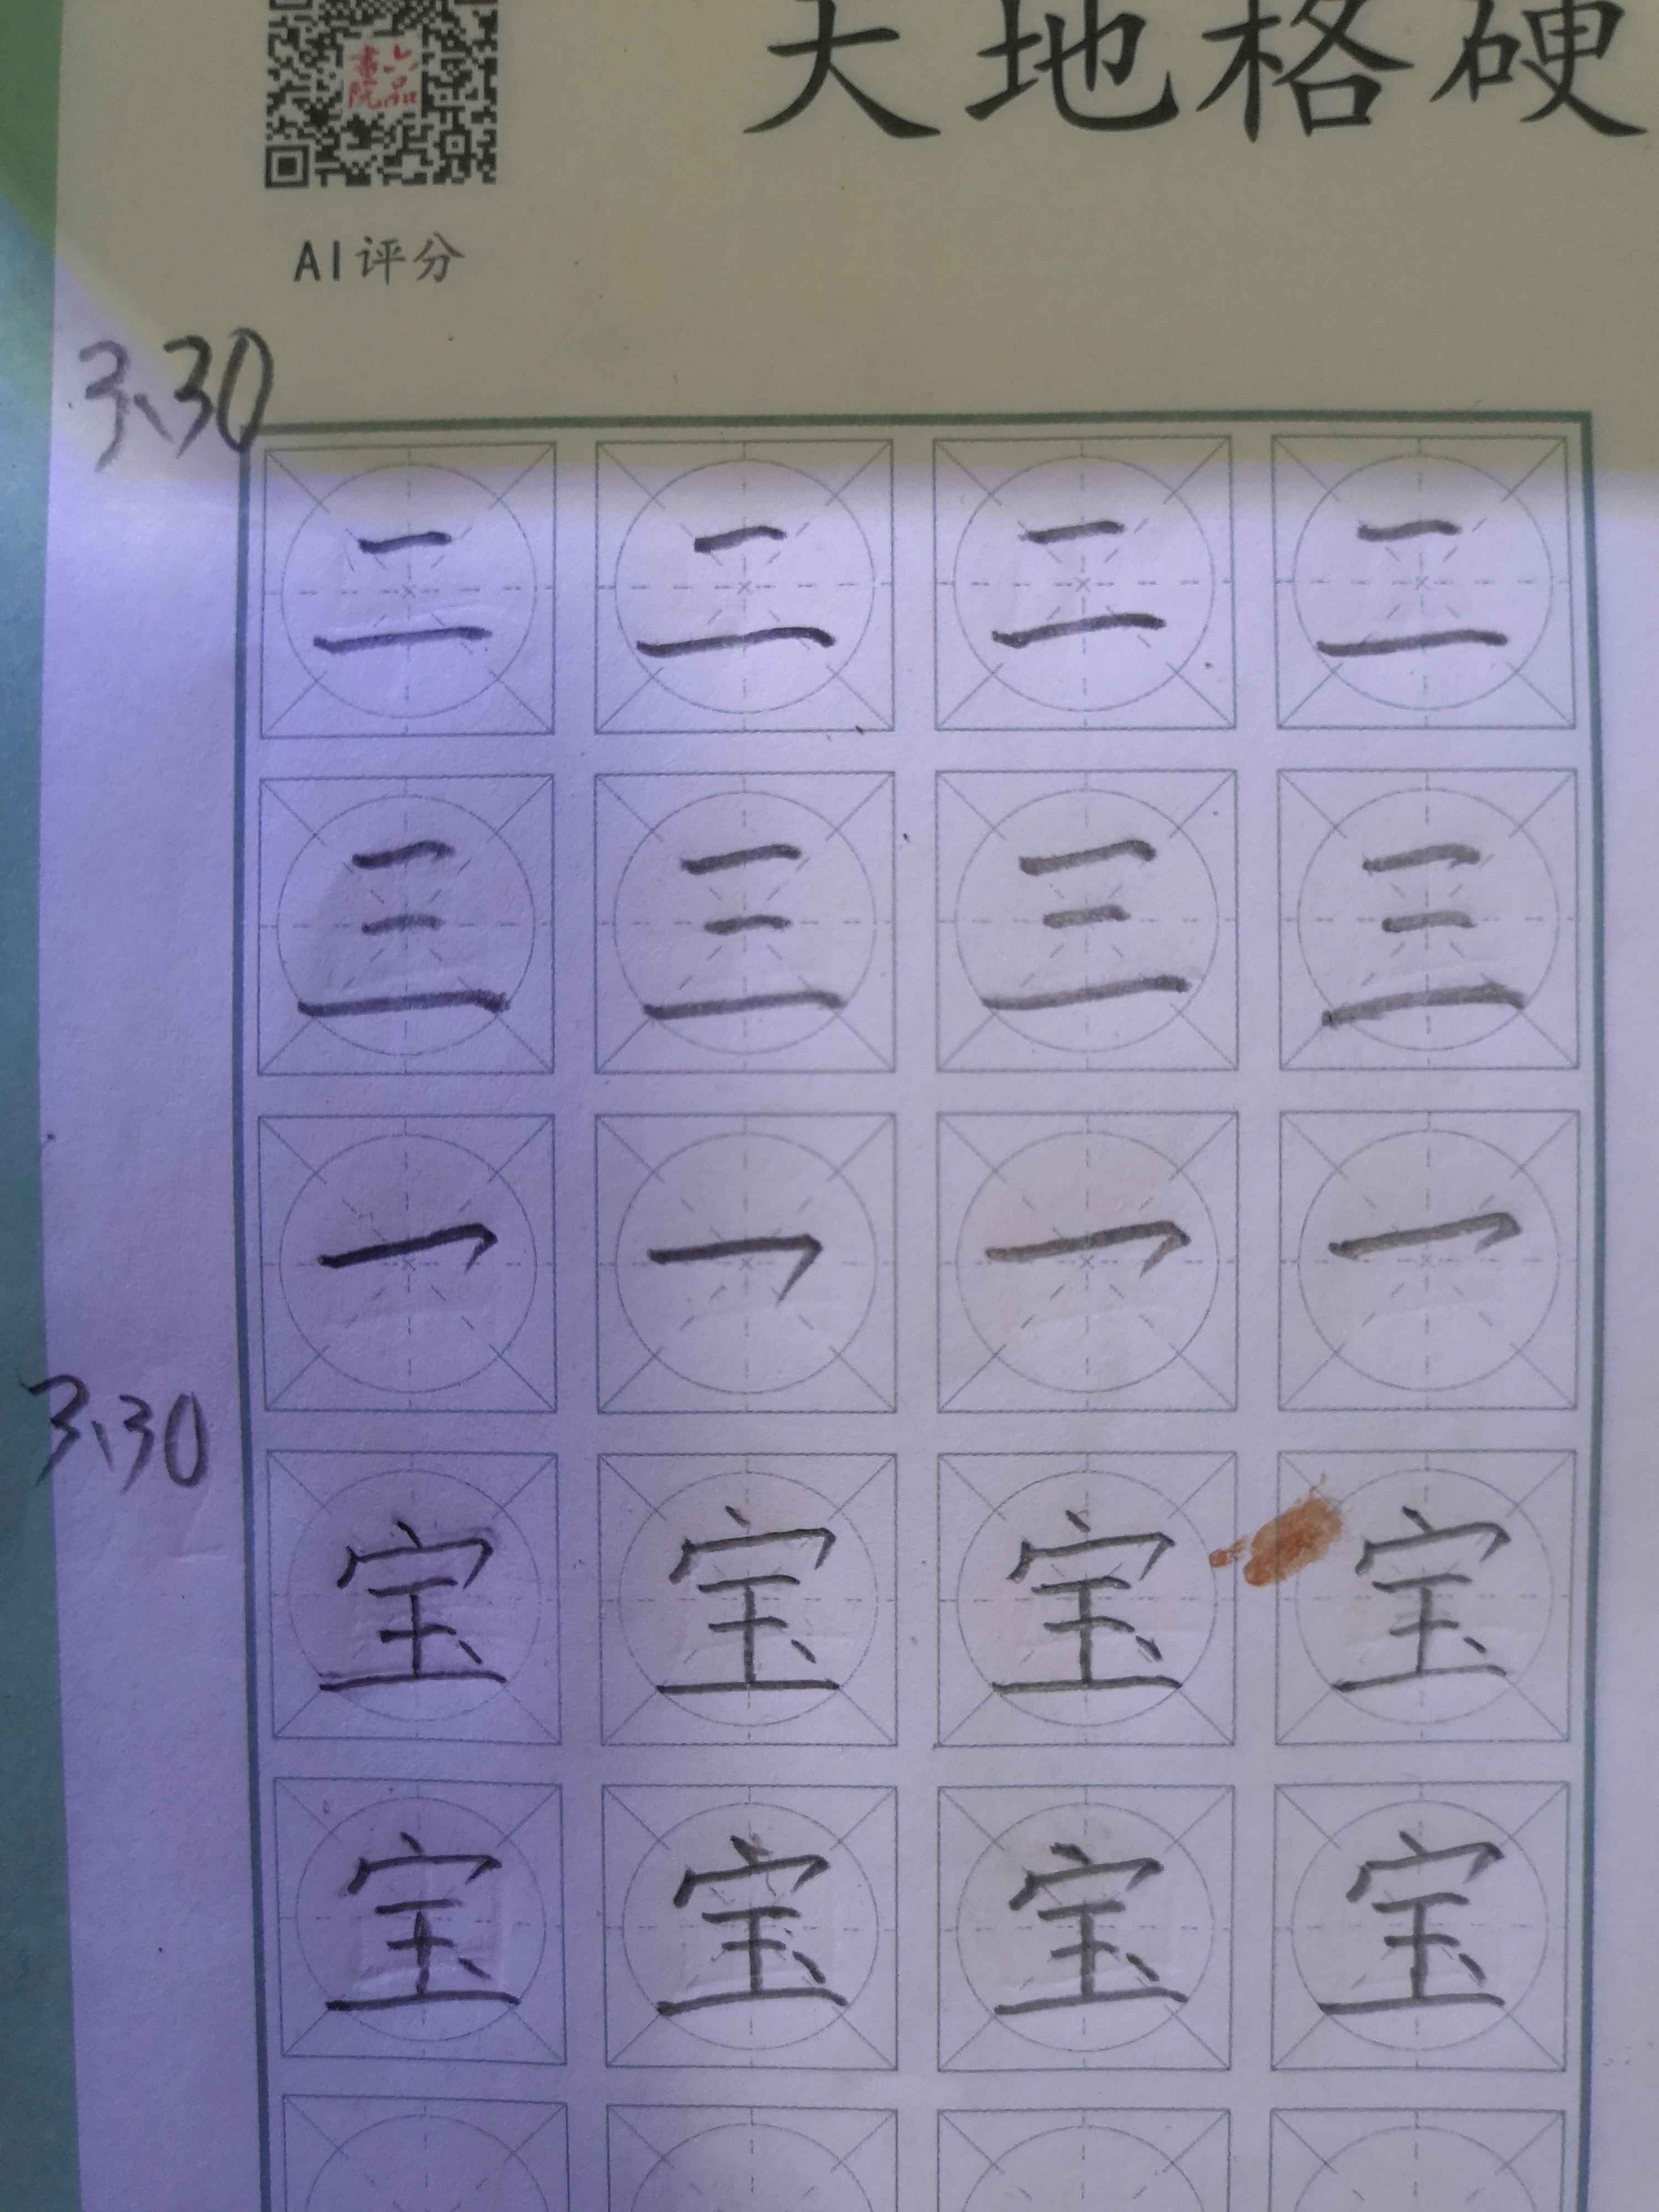 六品書院
天地格硬
AI评分
3、30
二 二 二 二
三 三 三 三
3、30
宝 宝 宝 宝
宝 宝 宝 宝